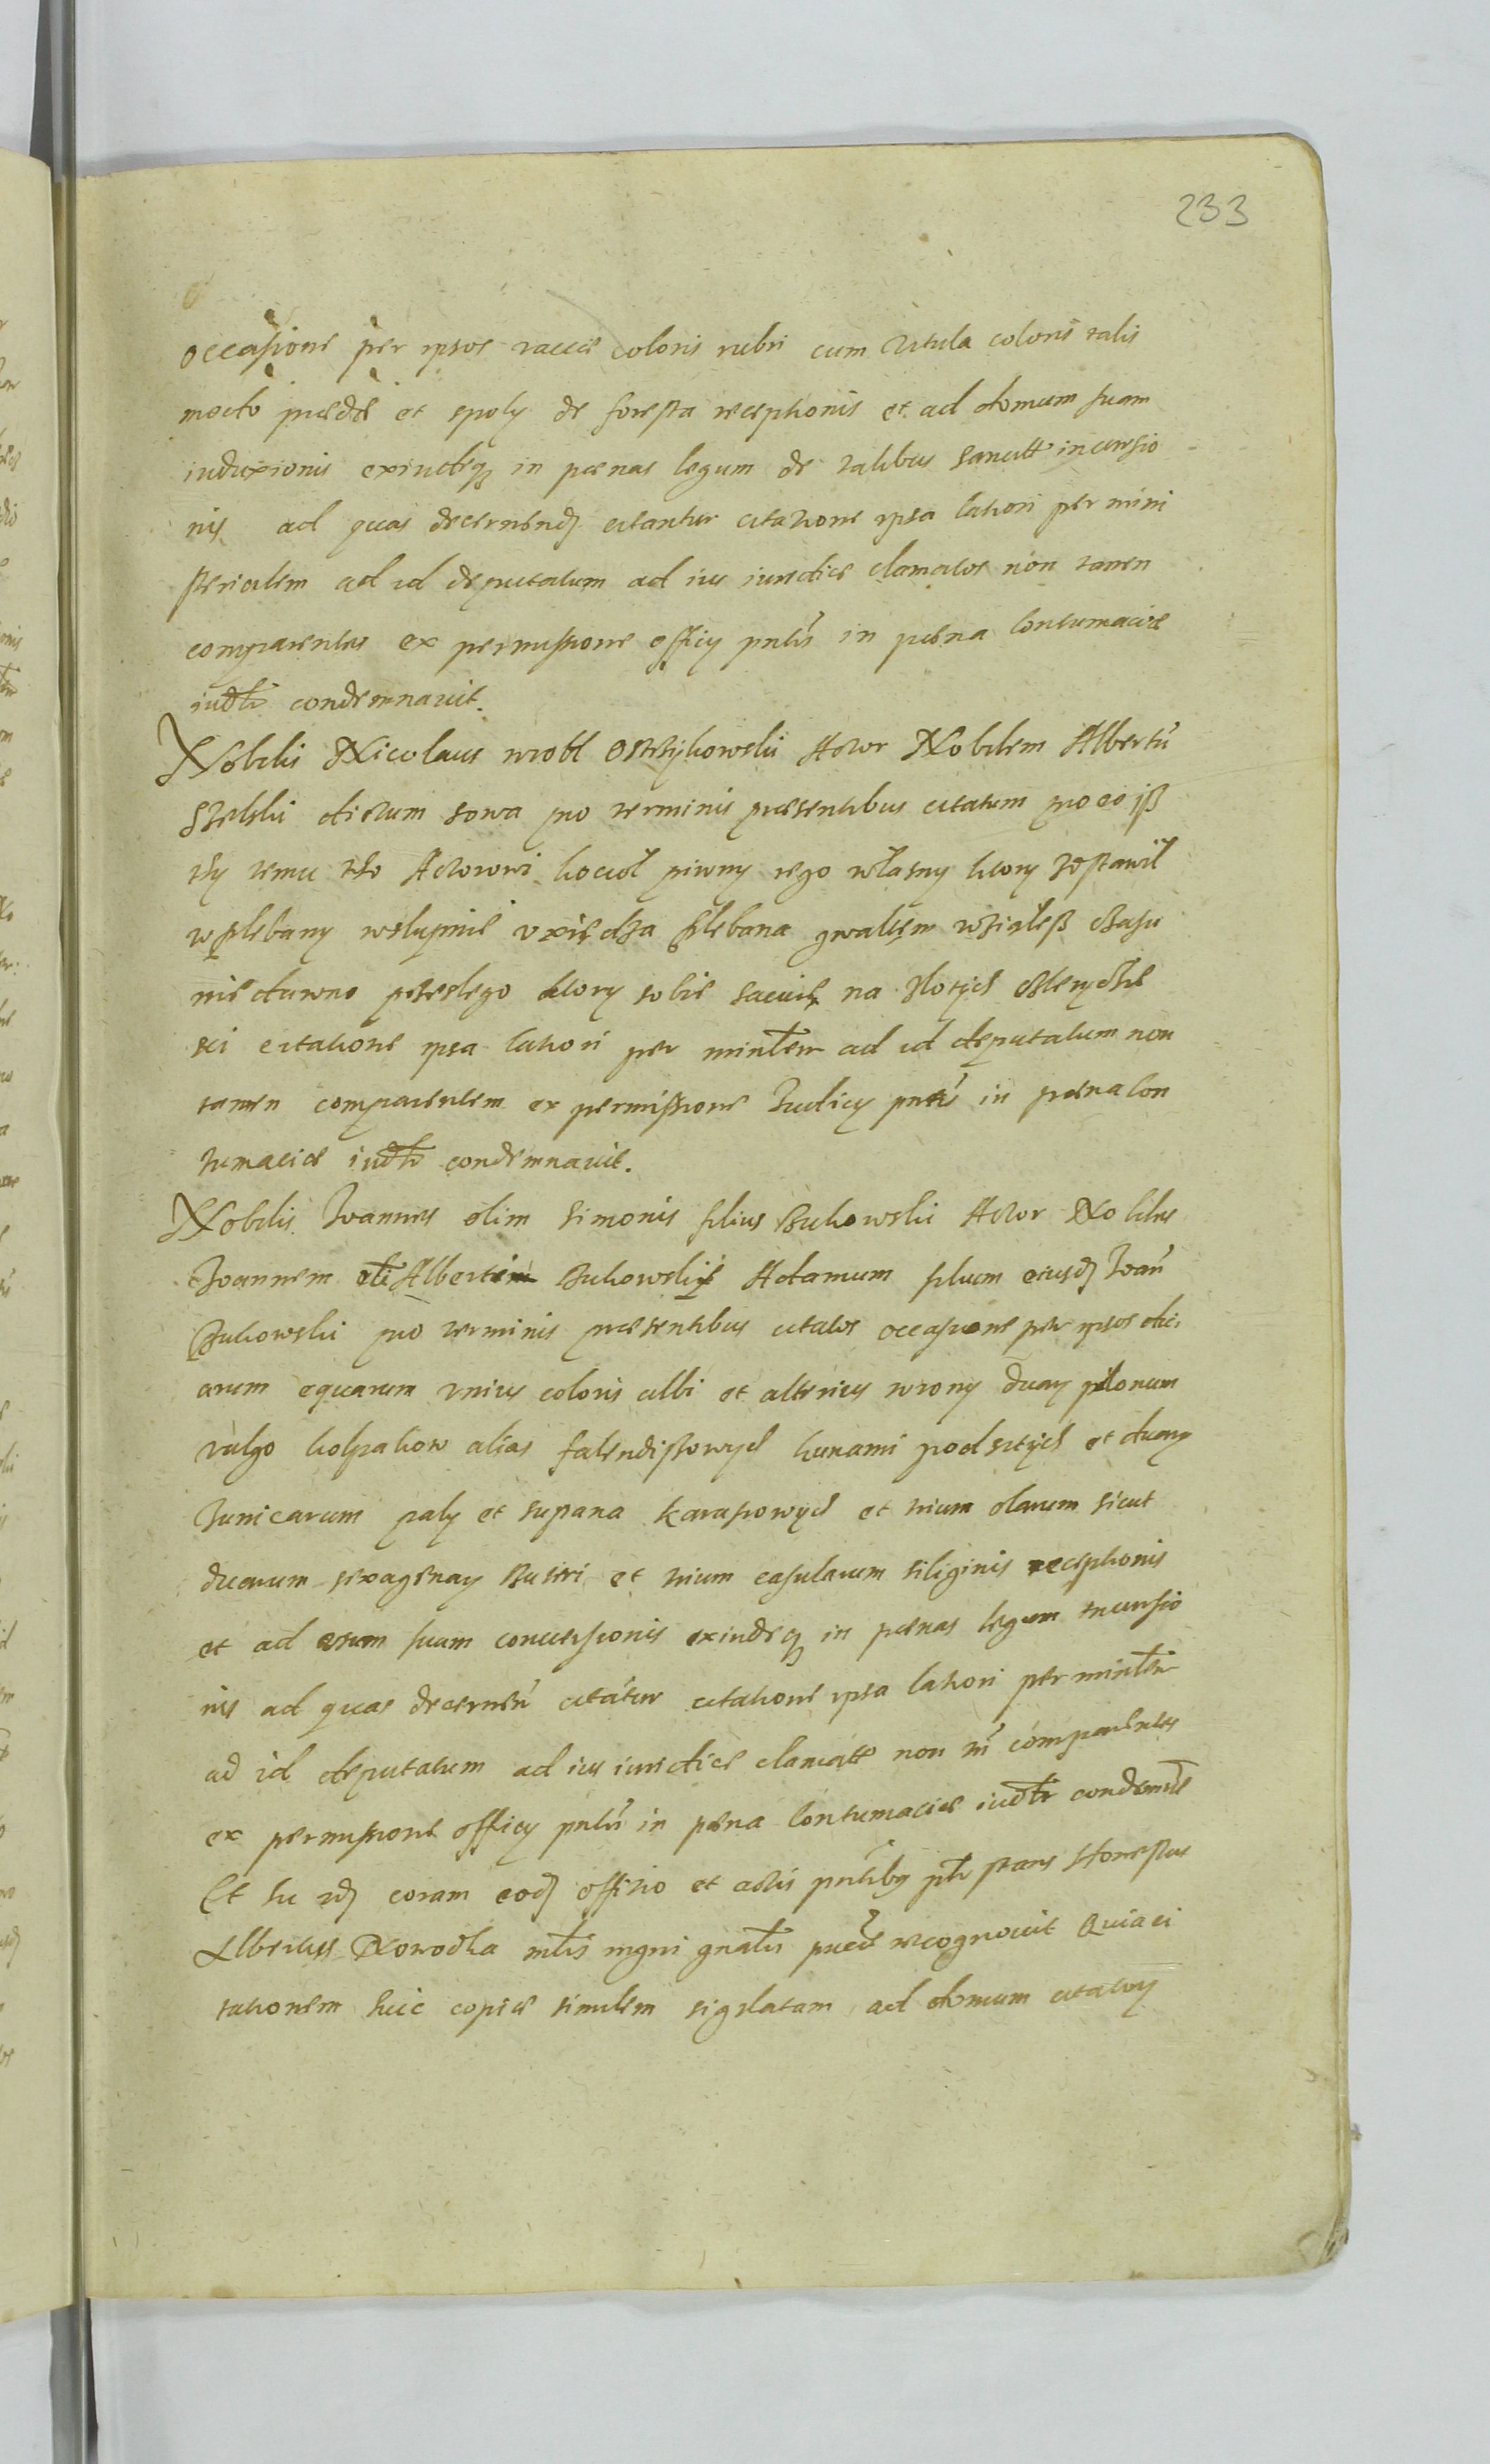 233
occasione per ipsos vaccæ coloris rubri cum vitula coloris talis
modo prædæ et spoly de foresta receptionis et ad domum suam
induxionis exindeq3 in pœnas legum de talibus sancitt incursio
nis ad quas decernend citantur citatione ipsa latiori per mini
sterialem ad id deputatum ad ius iuridice clamatos non tamen
comparentes ex permissione officy pntis in pœna contumaciæ
iudtr condemnauit.
Nobilis Nicolaus wrobl Ostrzykowski Actor Nobilem Albertū
dictum sowa pro terminis præsentibus citatum pro eo jß
ty temu tho Actorowi kocioł piwny iego własny ktory zostawil
wplebany wslupnie v xiędza plebana gwałtem wziąłeß czasu
niedawno przeslego ktory sobie sacuie na zlotych
sci citatione ipsa latiori per mintlem ad id deputatum non
tamen comparentem ex permissione Iudicy pntis in pœna con
tumaciæ iudtr condemnauit.
Nobilis Ioannes olim Simonis filius Bukowski Actor Nobiles
Ioannem Alberti Bukowskie Adamum filium eiusd Ioan
Bukowski pro terminis præsentibus citatos occasione per ipsos
arum equarum vnius coloris albi et alterius wrony duar pilorum
vulgo kolpakow alias falendissowych kunami podsitych et duar
tunicarum paly et supana karasiowych et trium olarum sicut
duarum sexagenar et trium casularum siliginis receptionis
et ad vsum suum conuersionis exindeq3 in pœnas legum incursio
nis ad quas decernen citatur citatione ipsa latiori per mintlem
ad id deputatum ad ius iuridice clamatt non tn comparentes
ex permissione officy pntis in pœna contumaciæ iudtr
Et hic id coram eod officio et actis pntibus ptr stans Honestus
Albertus Nowodka mtlis rngni gnatis præd recognouit Quia ci
tationem huic copiæ similem sigilatam ad domum citator